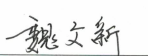 魏文新